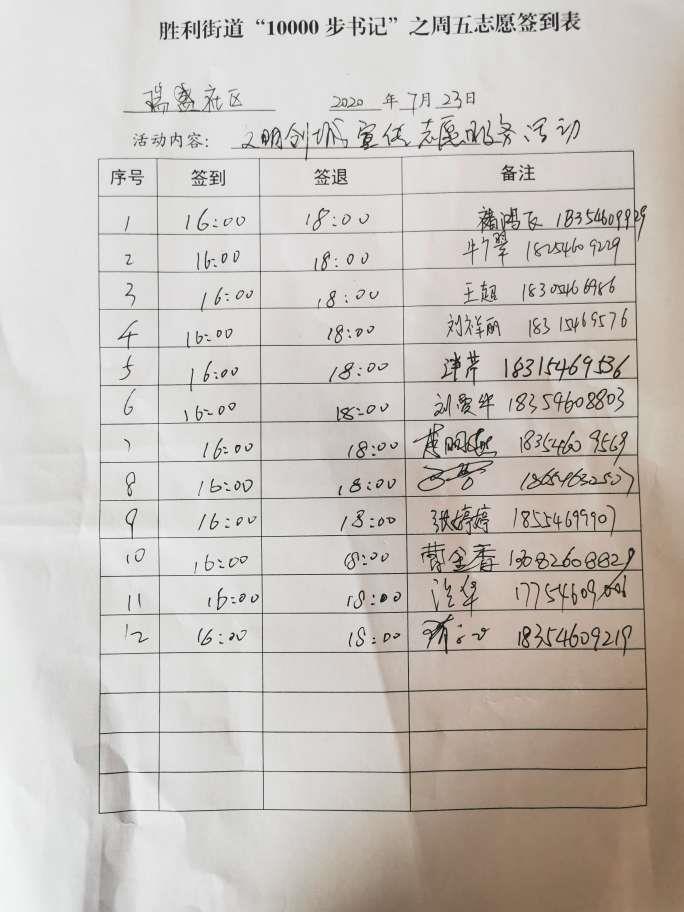 胜利街道“10000步书记”之周五志愿签到表
社区 2020 年 7 月 23 日
活动内容: 文明创城宣传志愿服务活动
序号 签到 签退 备注
1 16:00 18:00 18354609929
2 16:00 18:00 18254609229
3 16:00 18:00 王超 18305466986
4 16:00 18:00 刘祥丽 18315469576
5 16:00 18:00 18315469536
6 16:00 18:00 刘爱华 18354608803
7 16:00 18:00 18354609569
8 16:00 18:00 18654632507
9 16:00 18:00 张婷婷 18554699907
10 16:00 8:00 曹金香
11 16:00 18:00
12 16:00 18:00 18354609219